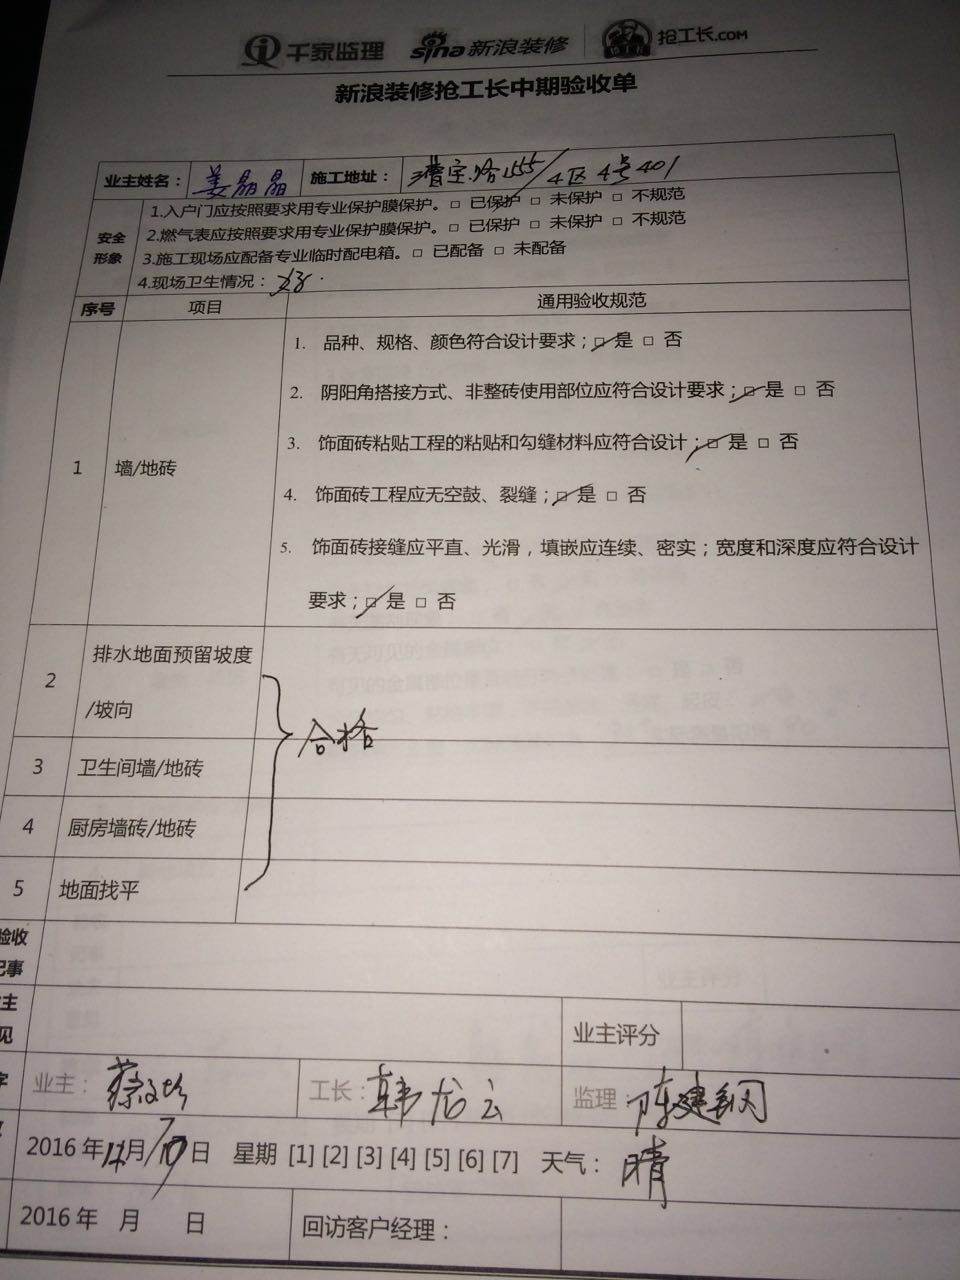 千家监理 sina新浪装修 抢工长.COM
新浪装修抢工长中期验收单
业主姓名： 姜晶晶 施工地址： 漕宝路1555/4区4号401
安全形象
1.入户门应按照要求用专业保护膜保护。□ 已保护 □ 未保护 □ 不规范
2.燃气表应按照要求用专业保护膜保护。□ 已保护 □ 未保护 □ 不规范
3.施工现场应配备专业临时配电箱。□ 已配备 □ 未配备
4.现场卫生情况：
序号 项目 通用验收规范
1 墙/地砖
1. 品种、规格、颜色符合设计要求；☑ 是 □ 否
2. 阴阳角搭接方式、非整砖使用部位应符合设计要求；☑ 是 □ 否
3. 饰面砖粘贴工程的粘贴和勾缝材料应符合设计；☑ 是 □ 否
4. 饰面砖工程应无空鼓、裂缝；☑ 是 □ 否
5. 饰面砖接缝应平直、光滑，填嵌应连续、密实；宽度和深度应符合设计
要求；☑ 是 □ 否
2 排水地面预留坡度
/坡向
合格
3 卫生间墙/地砖
4 厨房墙砖/地砖
5 地面找平
验收
记事
主
见
业主评分
字
业主： 工长：韩龙云 监理：陈建钢
2016年 月 日 星期 [1] [2] [3] [4] [5] [6] [7] 天气：晴
2016年 月 日 回访客户经理：